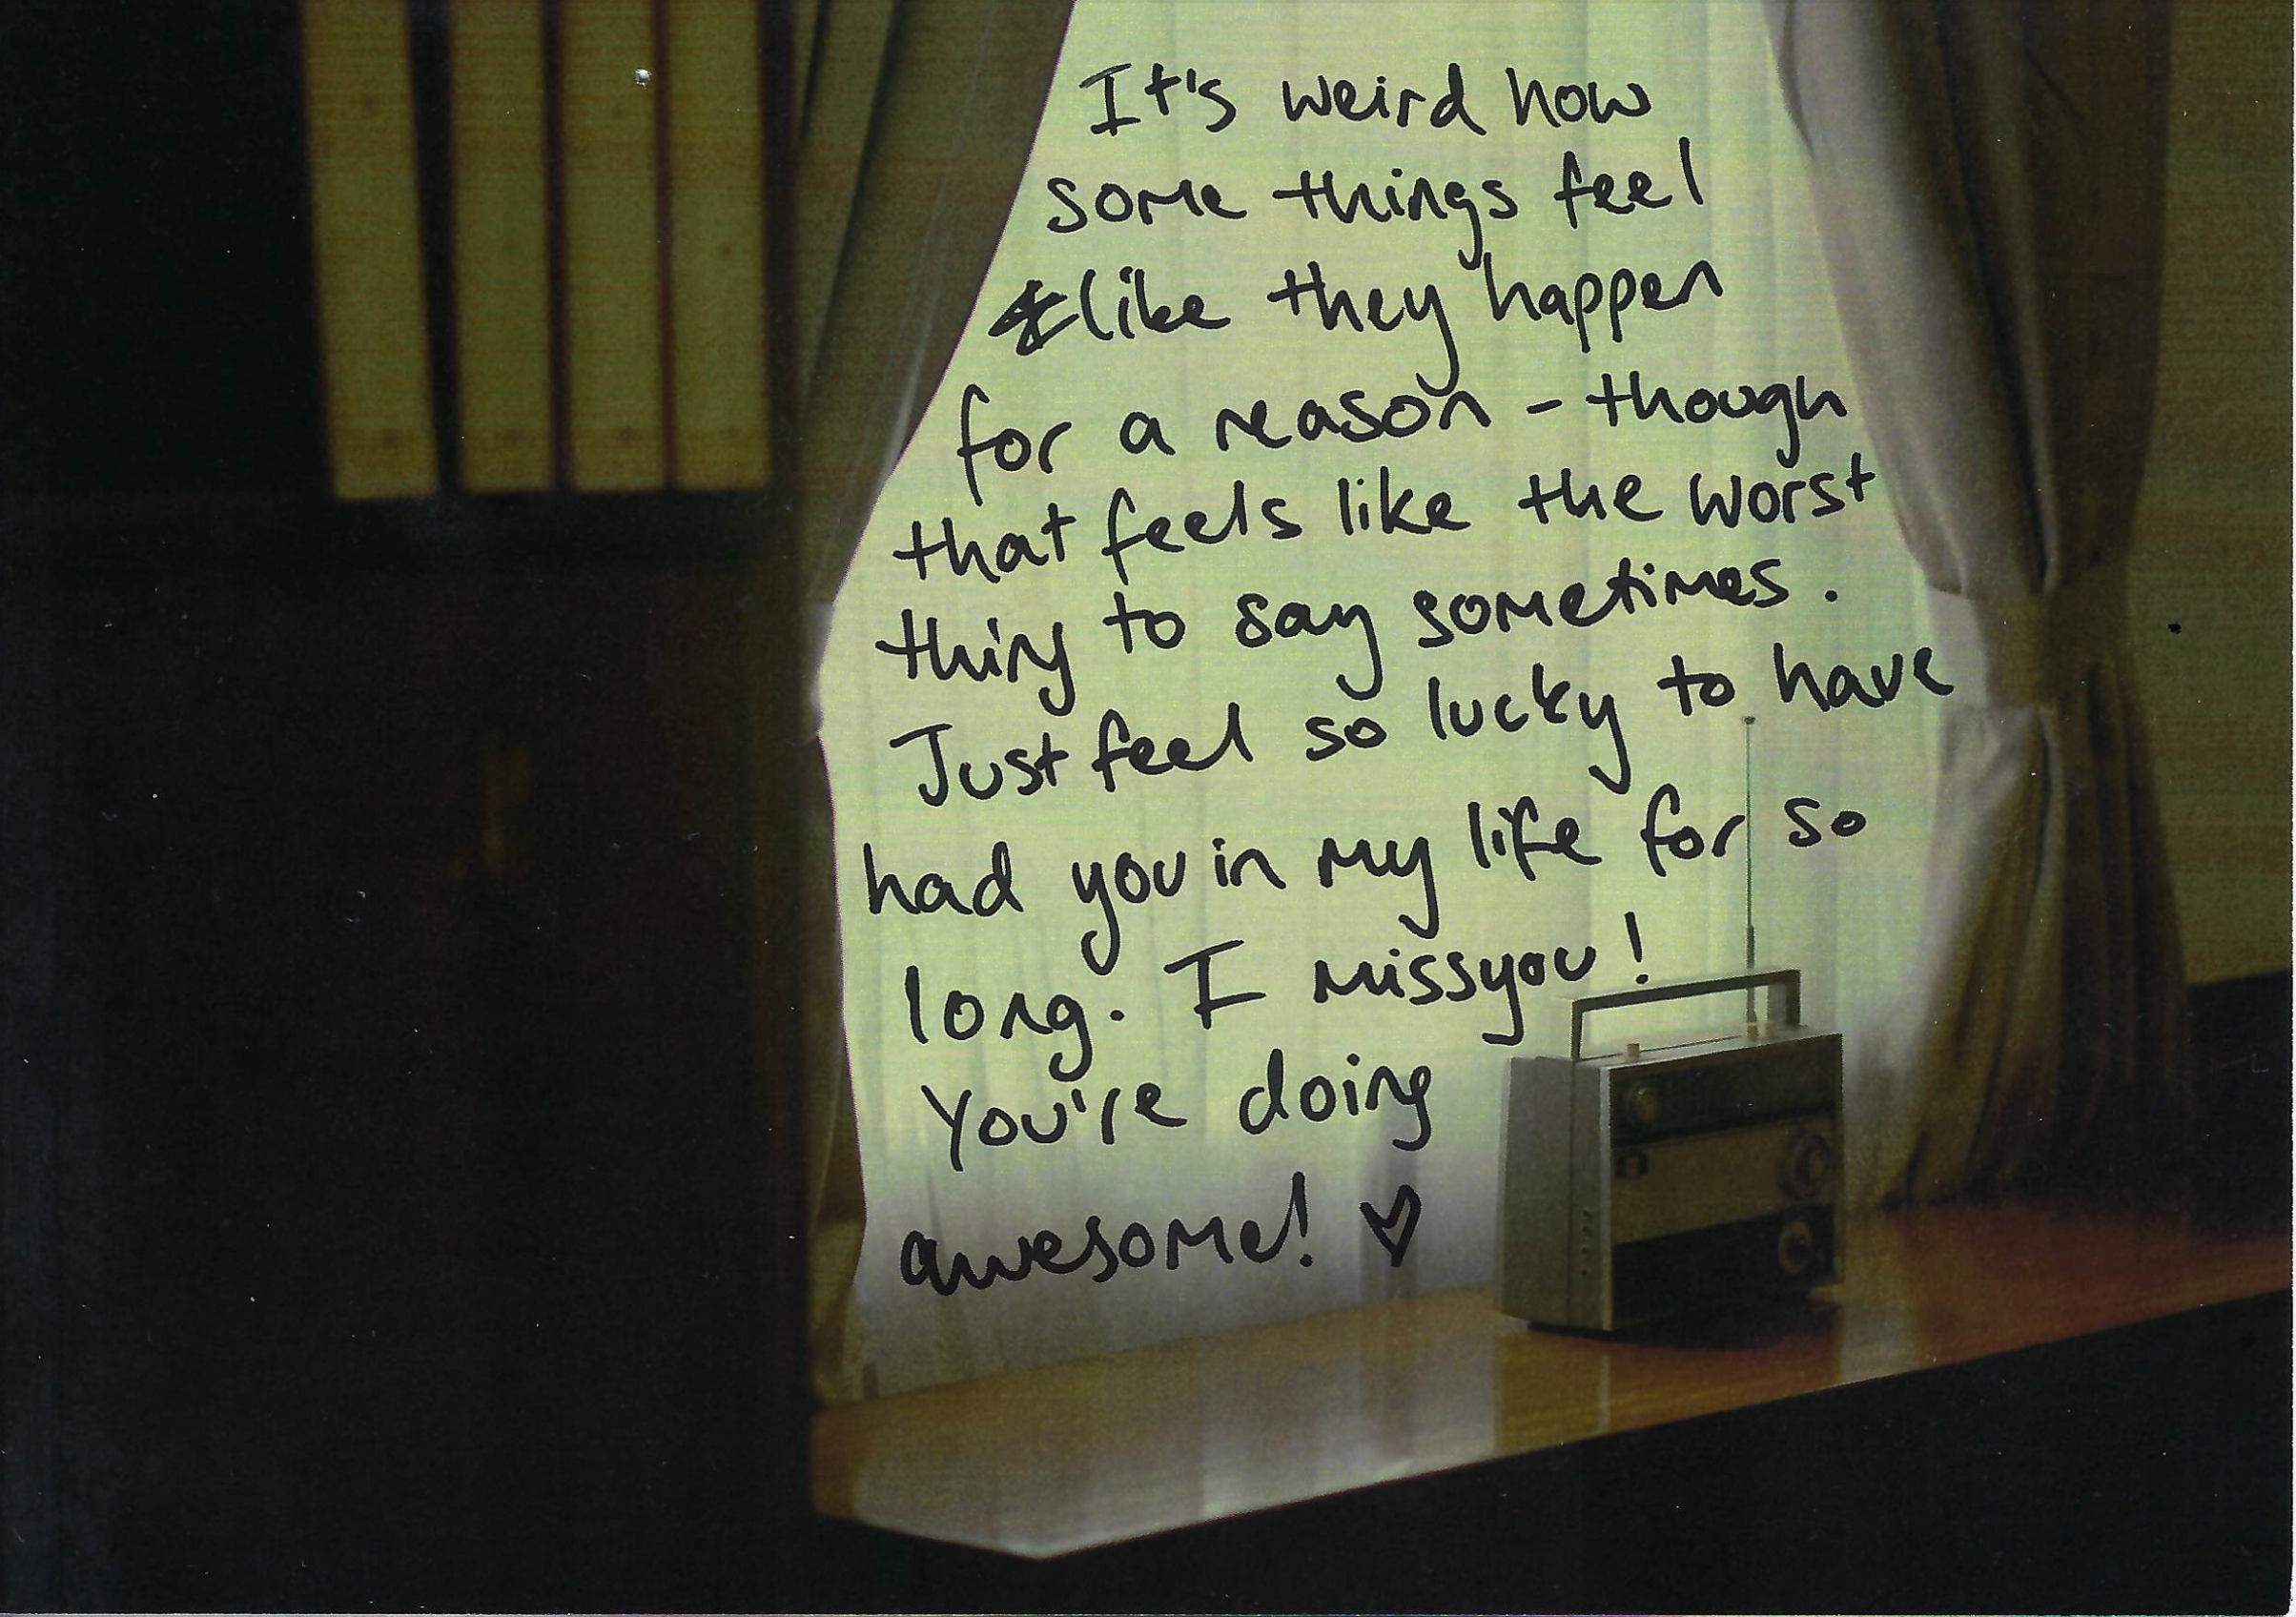 It's weird how
some things feel
like they happen
for a reason - though
that feels like the worst
thing to say sometimes.
Just feel so lucky to have
had you in my life for so
long. I miss you!
You're doing
awesome! ♡